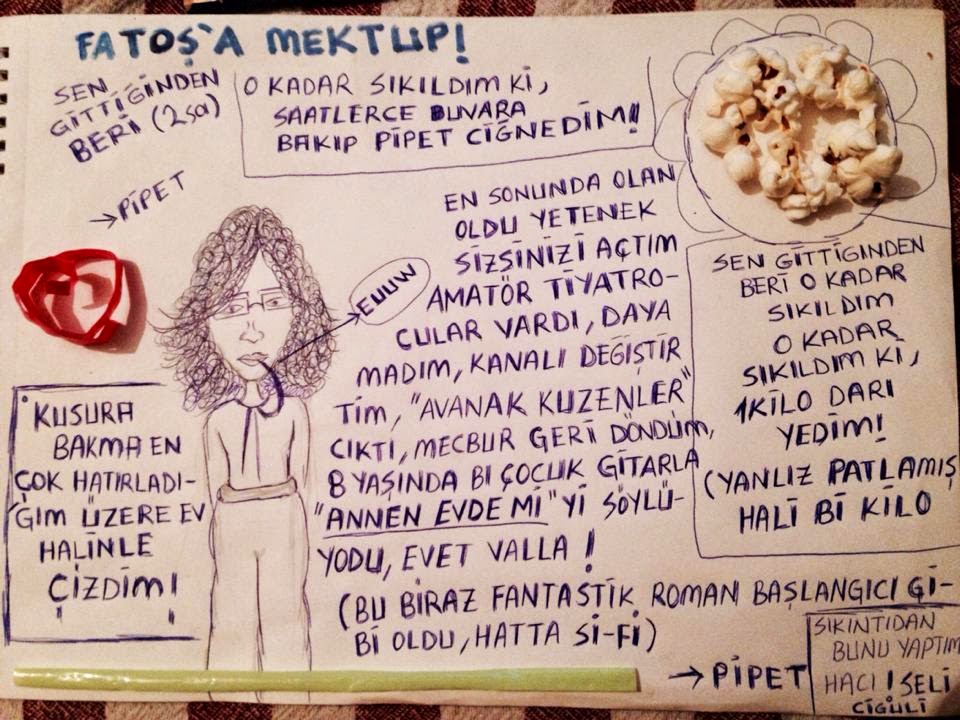 FATOŞ'A MEKTUP!
SEN
GİTTİĞİNDEN
BERİ (2sa)
O KADAR SIKILDIM Kİ,
SAATLERCE DUVARA
BAKIP PİPET CİĞNEDİM!
→PİPET
EN SONUNDA OLAN
OLDU YETENEK
SİZSİNİZİ AÇTIM
AMATÖR TİYATRO-
CULAR VARDI, DAYA
MADIM, KANALI DEĞİŞTİR
TİM, "AVANAK KUZENLER"
CIKTI, MECBUR GERİ DÖNDÜM,
8 YAŞINDA Bİ ÇOÇUK GİTARLA
"ANNEN EVDE Mİ"Yİ SÖYLÜ-
YODU, EVET VALLA !
(BU BİRAZ FANTASTİK ROMAN BAŞLANGICI Gİ-
Bİ OLDU, HATTA Sİ-Fİ)
EUUW
KUSURA
BAKMA EN
ÇOK HATIRLADI-
ĞIM ÜZERE EV
HALİNLE
ÇİZDİM!
SEN GİTTİĞİNDEN
BERİ O KADAR
SIKILDIM
O KADAR
SIKILDIM Kİ,
1KİLO DARI
YEDİM!
(YANLIZ PATLAMIŞ
HALİ Bİ KİLO
→PİPET
SIKINTIDAN
BUNU YAPTIM
HACI ! SELİ
CİGÜLİ